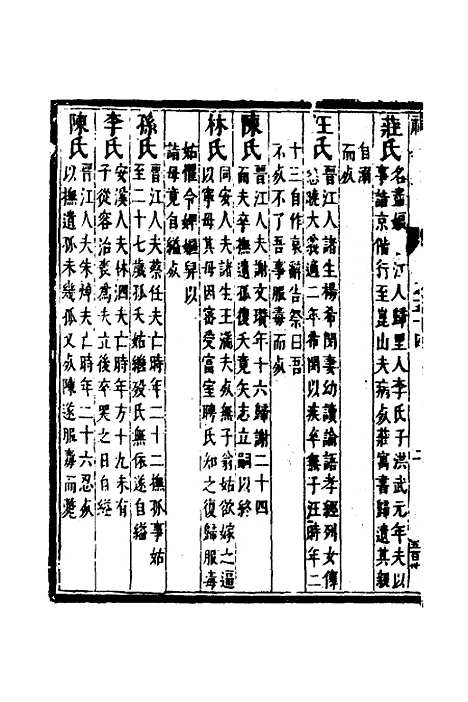 莊氏名晝娘 江人歸里人李氏子洪武元年夫以
事詣京偕行至崑山夫病歿莊寓書歸遺其親
自溺
而歿
王氏晉江人諸生楊希閔妻幼讀論語孝經列女傳
曉大義適二年希閔以疾卒無子王時年二
十三自作哀辭告祭曰吾
不歿不了吾事服毒而歿
陳氏晉江人夫謝文瓚年十六歸謝二十四
而夫卒撫遺孤復夭竟矢志立嗣以終
林氏同安人夫諸生王滿夫歿無子翁姑欲嫁之逼
以寧母其母因審受富室聘氏知之復歸服毒
姑懼令婢嫗舁以
詣母竟自縊歿
孫氏晉江人夫蔡任夫亡時年二十二撫孤事姑
至二十七歲孤夭姑繼歿氏無依遂自縊
李氏安溪人夫林泗夫亡時年方十九未有
子從容治喪為夫立後卒哭之日自縊
陳氏晉江人夫朱焯夫亡時年二十六忍歿
以撫遺孤未幾孤又歿陳遂服毒而斃